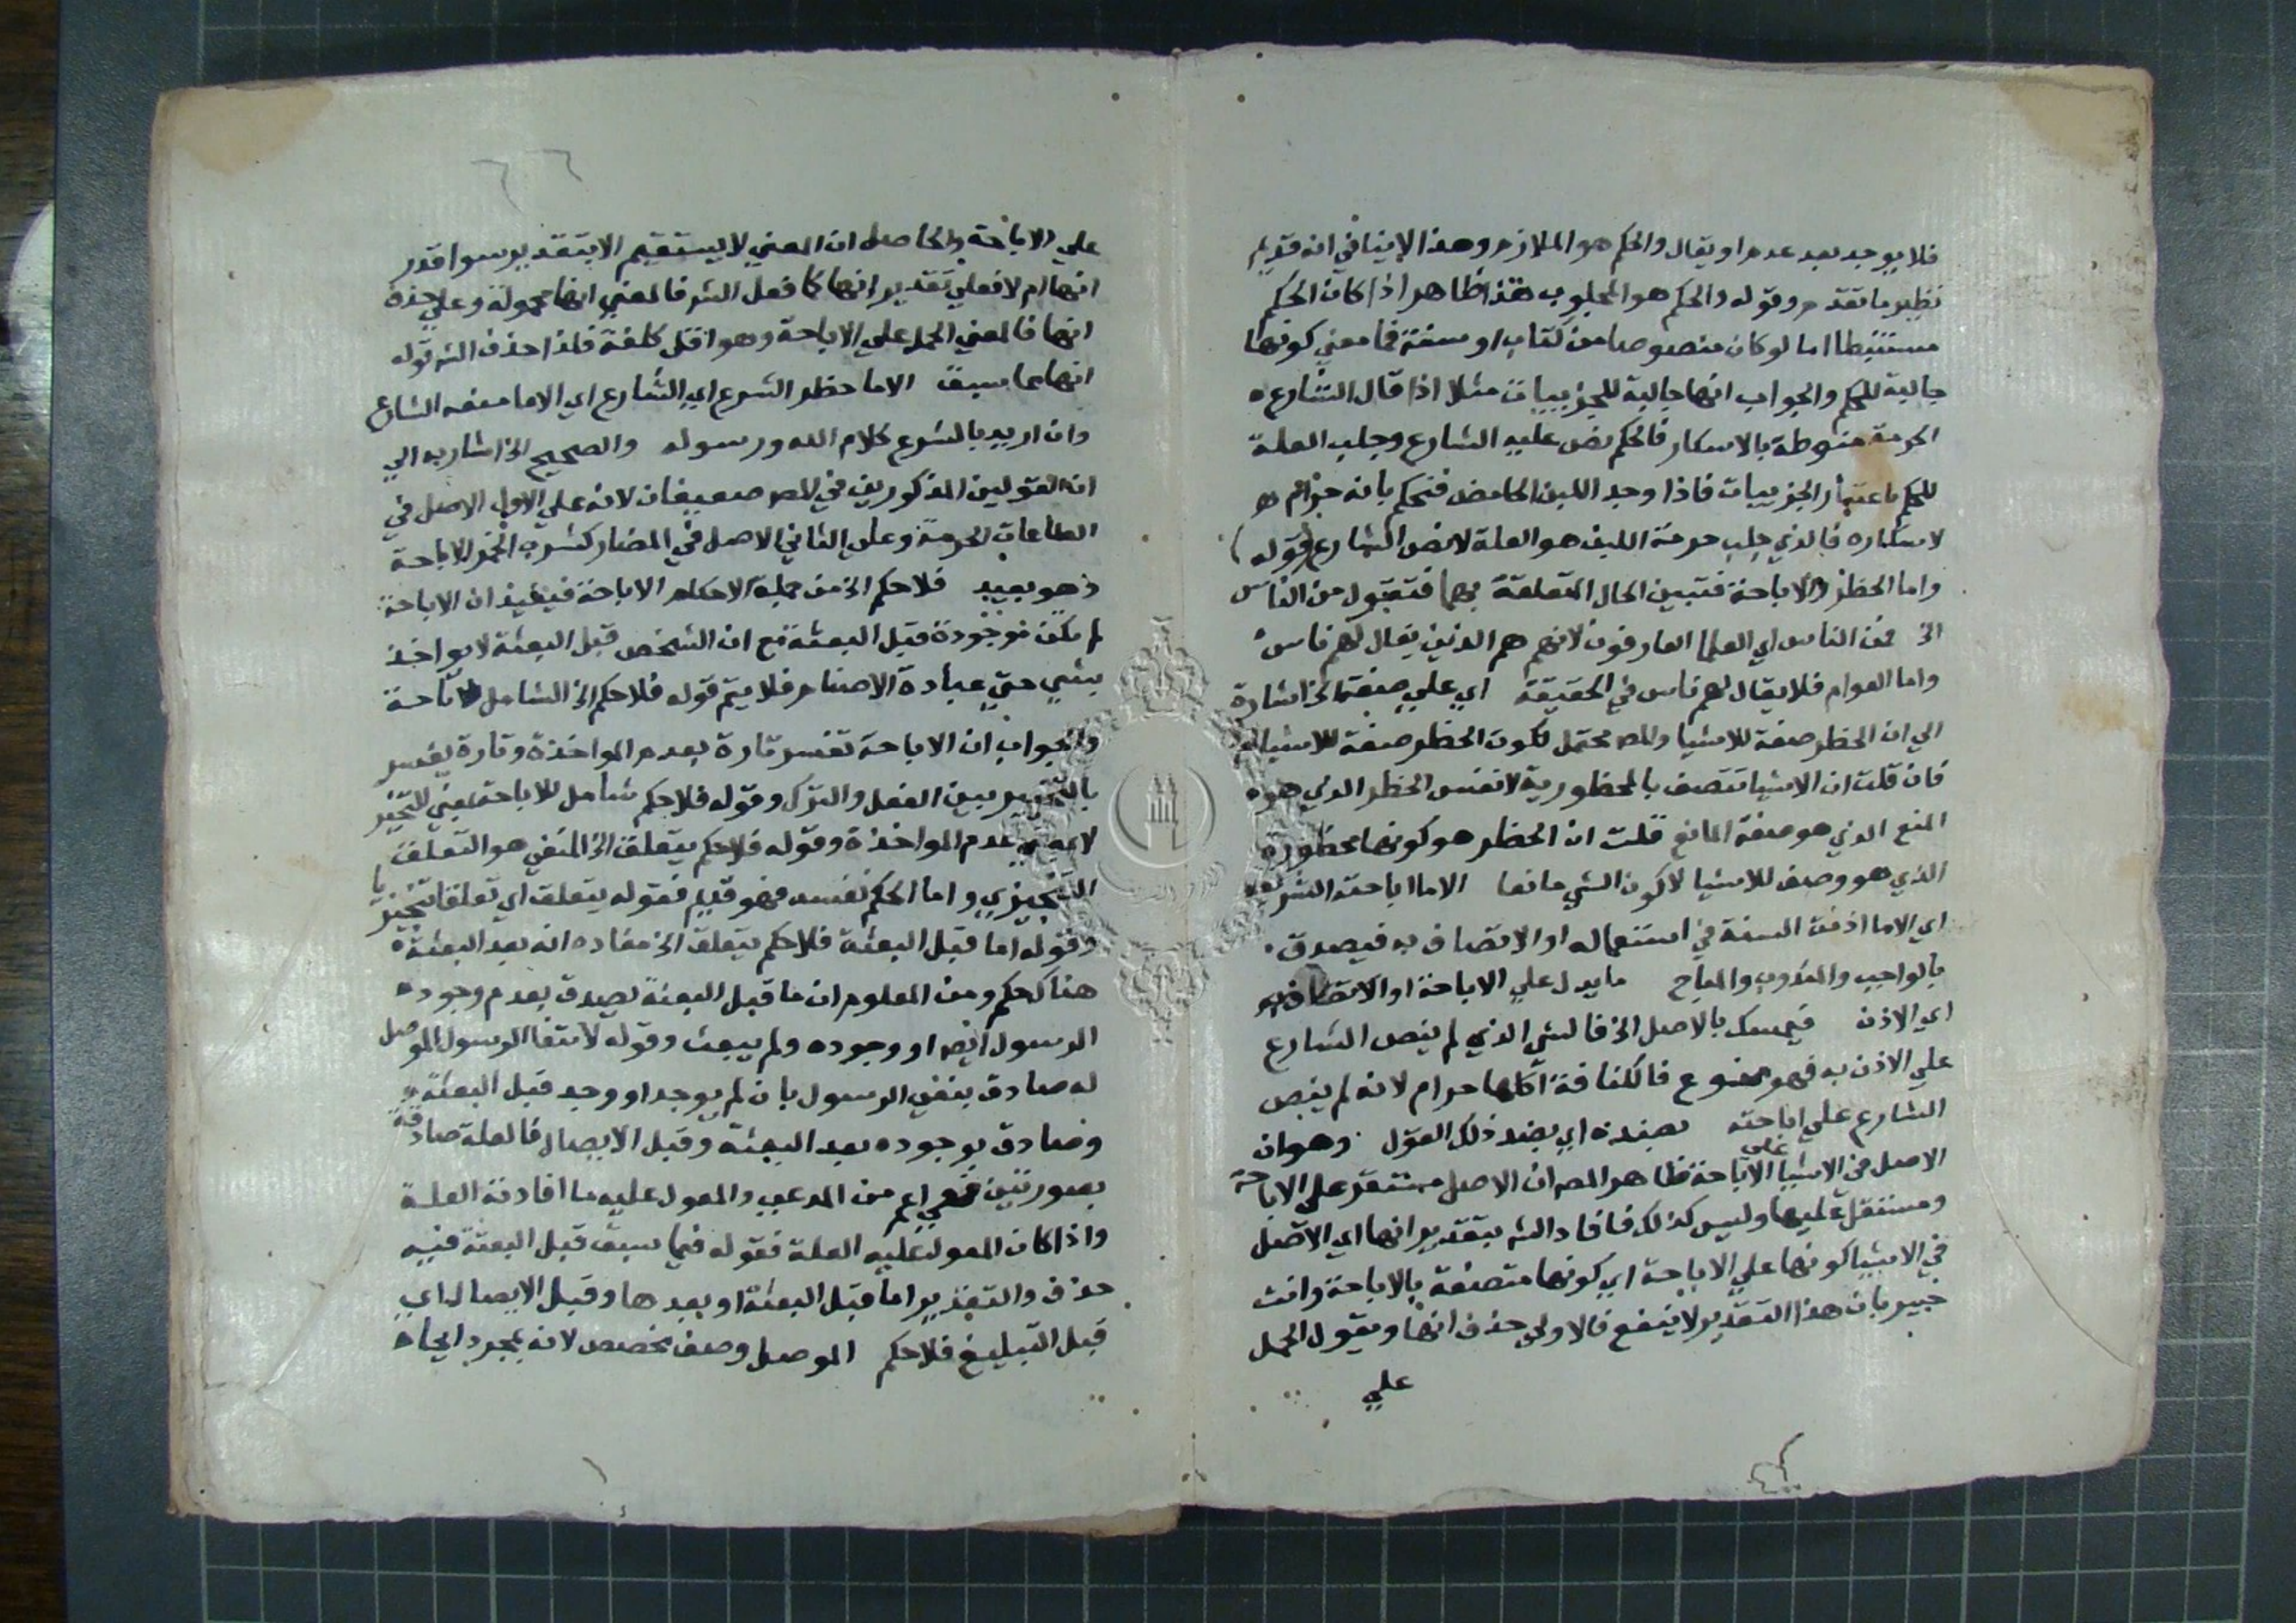 فلا يوجد بعد عدم او يقال والحكم هو الملازم وهذا لا ينافي انه قديم
نظير ما تقدم وقوله والحكم هو المجلوب هذا ظاهر اذا كان الحكم
مستنبطا اما لو كان منصوصا من كتاب او سنة فما معني كونها
جالبة للحكم والجواب انها جالبة للجزييات مثلا اذا قال الشارع
الحرمة منوطة بالاسكار فالحكم نص عليه الشارع وجلب العلة
للحكم باعتبار الجزييات فاذا وجد اللبن الحامض فنحكم بانه حرام
لاسكاره فالذي جلب حرمة اللبن هو العلة لا نص الشارع (قوله)
واما الحظر والاباحة فتبين الحال المتعلقة بهما فتقول من الناس
الخ فمن الناس اي العلما العارفون لانهم هم الذين يقال لهم ناس
واما العوام فلا يقال لهم ناس في الحقيقة اي علي صفة الخ اشارة
الي ان الحظر صفة للاشيا والمص محتمل لكون الحظر صفة للاشيا
فان قلت ان الاشيا تتصف بالمحظورية لا نفس الحظر الذي هو
المنع الذي هو صفة المانع قلت ان الحظر هو كونها محظورة
الذي هو وصف للاشيا لا كون الشي مانعا الا ما اباحته الشريعة
اي الا ما اذنت السنة في استعماله او الاتصاف به فيصدق
بالواجب والمندوب والمباح ما يدل علي الاباحة او الاتصاف به
اي الاذن فيمسك بالاصل الخ فالشي الذي لم ينص الشارع
علي الاذن به فهو ممنوع فالكنافة اكلها حرام لانه لم ينص
الشارع علي اباحته بضده اي بضد ذلك القول وهو ان
الاصل في الاشيا علي الاباحة ظاهر المص ان الاصل مستقر علي الاباحة
ومستقل عليها وليس كذلك فافاد الش بتقدير انها اي الاصل
في الاشيا كونها علي الاباحة اي كونها متصفة بالاباحة وانت
خبير بان هذا التقدير لا ينفع فالاولي حذف انها ويقول الحمل
علي
علي الاباحة والحاصل ان المعني لا يستقيم الا بتقدير سوا قدر
انها ام لا فعلي تقدير انها كما فعل الش فالمعني انها محمولة وعلي حذف
انها فالمعني الحمل علي الاباحة وهو اقل كلفة فلذا حذف الش قوله
انها مما سبق الا ما حظر الشرع اي الشارع اي الا ما منعه الشارع
وان اريد بالشرع كلام الله ورسوله والصحيح الخ اشار به الي
ان القولين المذكورين في المص ضعيفان لانه علي الاول الاصل في
الطاعات الحرمة وعلي الثاني الاصل في المضار كشرب الخمر الاباحة
وهو بعيد فلا حكم الخ من جملة الاحكام الاباحة فيفيد ان الاباحة
لم تكن موجودة قبل البعثة مع ان الشخص قبل البعثة لا يواخذ
بشي حتي عبادة الاصنام فلا يتم قوله فلا حكم الخ الشامل للاباحة
والجواب ان الاباحة تفسر تارة بعدم المواخذة وتارة يفسر
بالتخيير بين الفعل والترك وقوله فلا حكم شامل للاباحة بمعني التخيير
لا بمعني عدم المواخذة وقوله فلا حكم يتعلق الخ المنفي هو التعلق
التنجيزي واما الحكم نفسه فهو قديم فقوله يتعلق اي تعلقا تنجيزيا
وقوله اما قبل البعثة فلا حكم يتعلق الخ مفاده انه بعد البعثة
هناك حكم ومن المعلوم ان ما قبل البعثة يصدق بعدم وجود
الرسول ايضا او وجوده ولم يبعث وقوله لانتفا الرسول الموصل
له صادق بنفي الرسول بان لم يوجد او وجد قبل البعثة و
وصادق بوجوده بعد البعثة وقبل الايصال فالعلة صادقة
بصورتين فهي اعم من المدعي والمعول عليه ما افادته العلة
واذا كان المعول عليه العلة فقوله فيما سبق قبل البعثة فيه
حذف والتقدير اما قبل البعثة او بعدها وقبل الايصال اي
قبل التبليغ فلا حكم الموصل وصف مخصص لانه بمجرد ايجاه